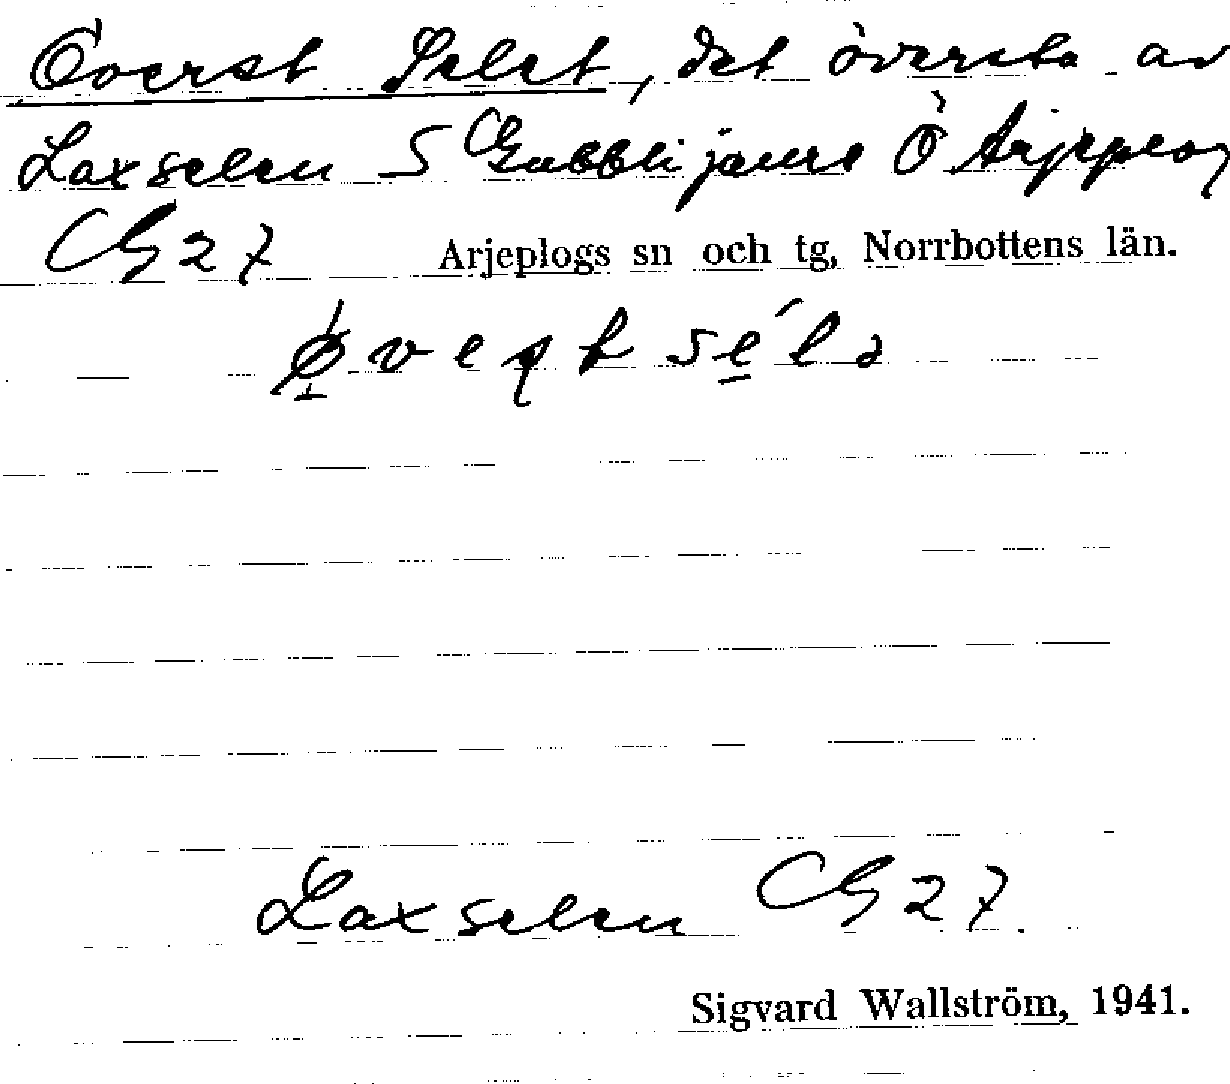 Överst Selet, det översta av
Laxselen S Gubblijaure Ö Arjeplog
G 27 Arjeplogs sn och tg, Norrbottens län.
Laxselen G 27.
Sigvard Wallström, 1941.